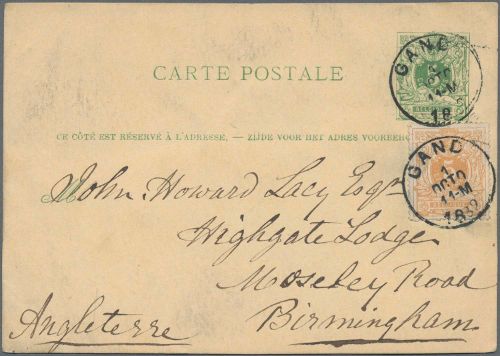 CARTE POSTALE
GAND
11-M
18
CE CÔTÉ EST RÉSERVÉ À L'ADRESSE, — ZIJDE VOOR HET ADRES VOORBEHO
GAND
1
OCTO
11-M
1882
John Howard Lacy Esqre
Highgate Lodge
Moseley Road
Birmingham
Angleterre